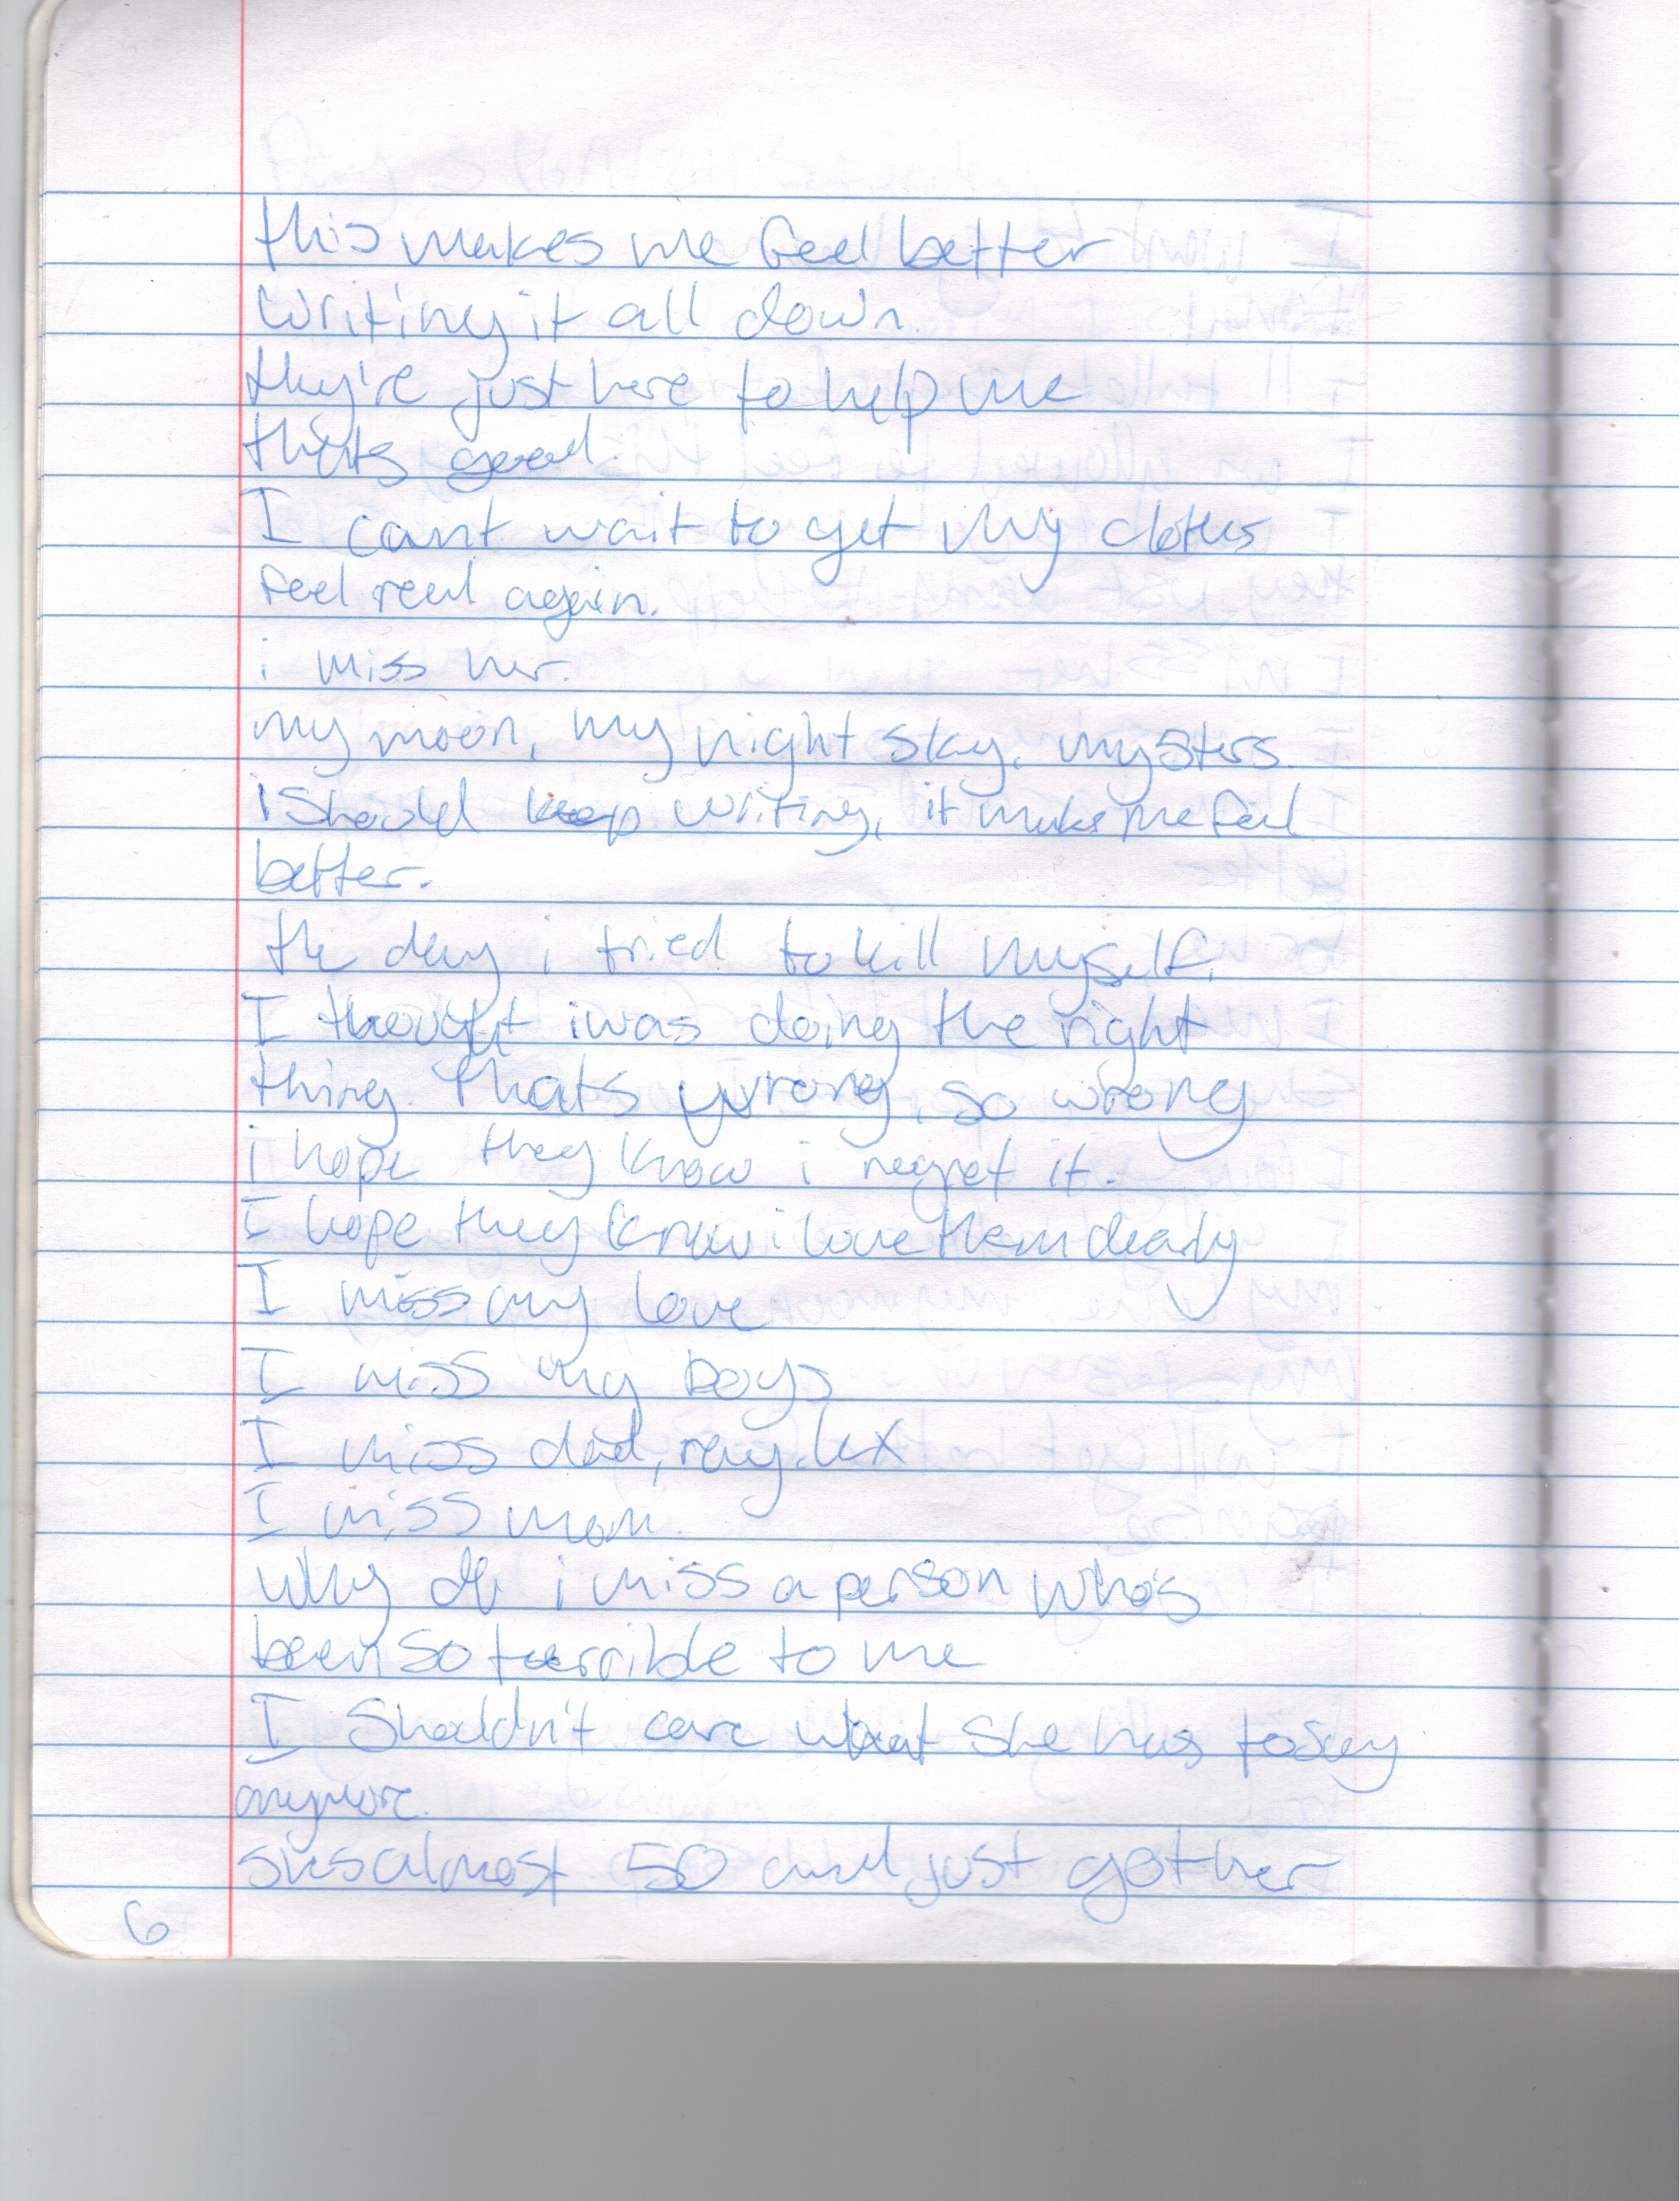 this makes me feel better
writing it all down.
they're just here to help me
thats good.
I cant wait to get my clothes
feel real again.
i miss her.
my moon, my night sky, my stars.
i should keep writing, it makes me feel
better.
the day i tried to kill myself,
I thought i was doing the right
thing. Thats wrong, so wrong
i hope they know i regret it.
I hope they know i love them dearly
I miss my love
I miss my boys
I miss dad, ray, lex
I miss mom.
why do i miss a person who's
been so terrible to me
I shouldn't care what she has to say
anymore.
shes almost 50 and just got her
6